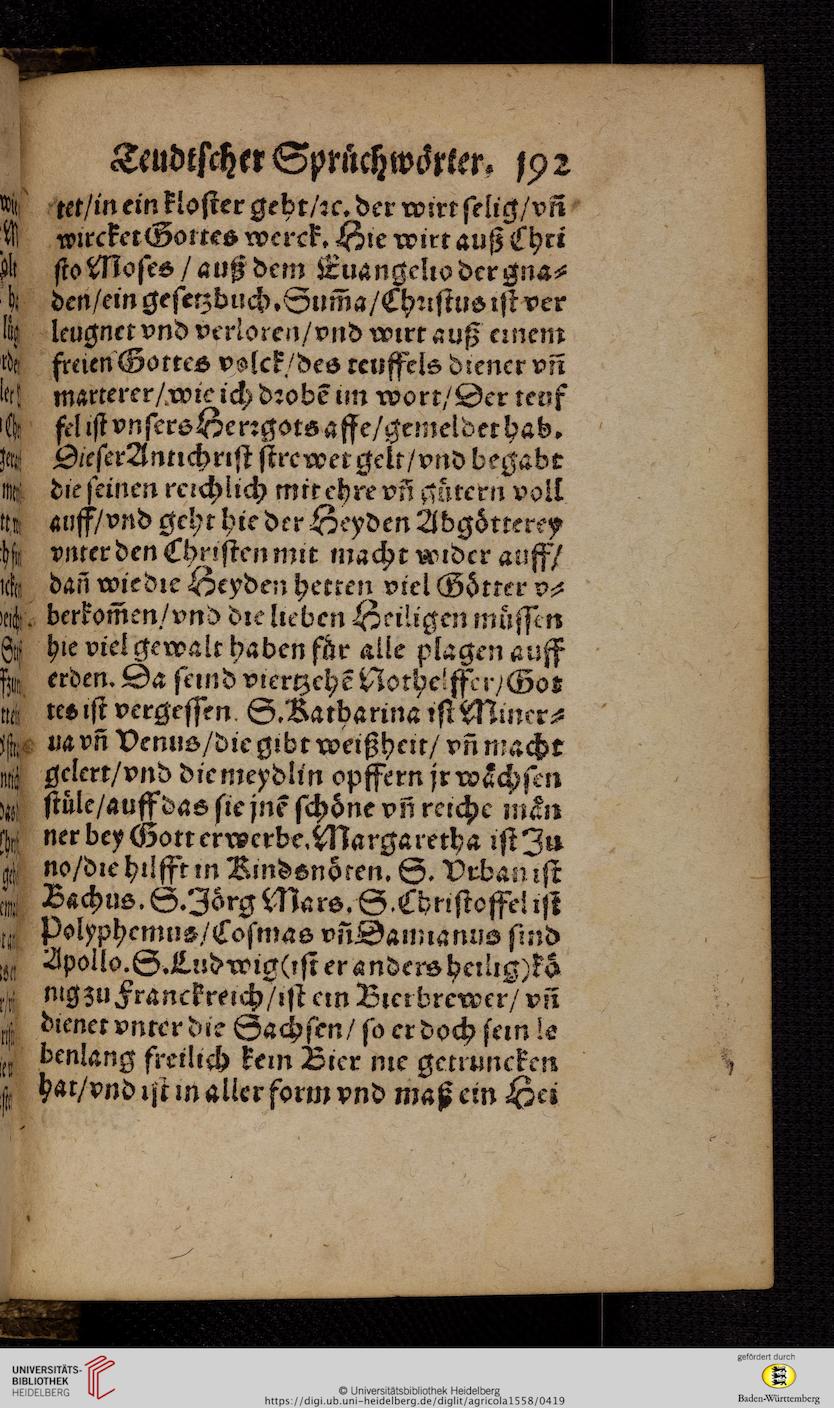 Teudtscher Sprüchwörter. 192
tet/in ein kloster geht/ꝛc. der wirt selig/vñ
wircket Gottes werck. Hie wirt auß Chri
sto Moses / auß dem Euangelio der gna⸗
den/ein gesetzbuch. Suma̅/Christus ist ver
leugnet vnd verloren/vnd wirt auß einem
freien Gottes volck/des teuffels diener vñ
marterer/wie ich drobẽ im wort/Der teuf
fel ist vnsers Herrgots affe/gemeldet hab.
Dieser Antichrist strewet gelt/vnd begabt
die seinen reichlich mit ehre vñ gütern voll
auff/vnd geht hie der Heyden Abgötterey
vnter den Christen mit macht wider auff/
dañ wie die Heyden hetten viel Götter v⸗
berkom̅en/vnd die lieben Heiligen müssen
hie viel gewalt haben für alle plagen auff
erden. Da seind viertzehẽ Nothelffer/Got
tes ist vergessen. S. Katharina ist Miner⸗
ua vñ Venus/die gibt weißheit/ vñ macht
gelert/vnd die meydlin opffern jr wächsen
stüle/auff das sie jnẽ schöne vñ reiche män
ner bey Gott erwerbe. Margaretha ist Ju
no/die hilfft in Kindsnöten. S. Vrban ist
Bachus. S. Jörg Mars. S. Christoffel ist
Polyphemus/Cosmas vñ Damianus sind
Apollo. S. Ludwig(ist er anders heilig)kö
nig zu Franckreich/ist ein Bierbrewer/ vñ
dienet vnter die Sachsen/ so er doch sein le
benlang freilich kein Bier nie getruncken
hat/vnd ist in aller form vnd maß ein Hei
UNIVERSITÄTS-
BIBLIOTHEK
HEIDELBERG
© Universitätsbibliothek Heidelberg
https://digi.ub.uni-heidelberg.de/diglit/agricola1558/0419
gefördert durch
Baden-Württemberg